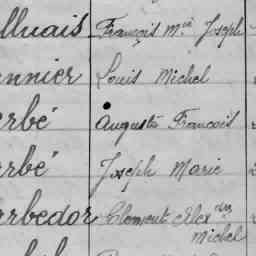 lluais François Mie Joseph
nnier Louis Michel
erbé Auguste François
erbé Joseph Marie
rbedor Clément Alexdre
Michel